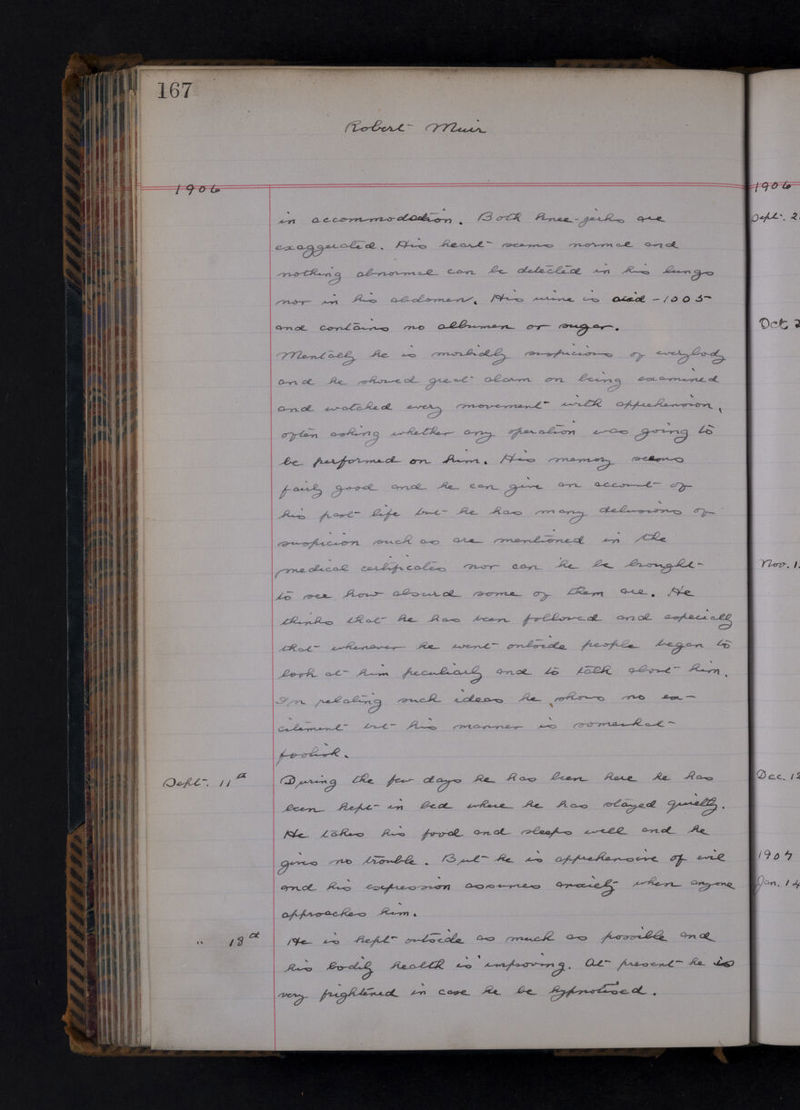 167
Robert Muir
1906
in accommodation. Both knee-jerks are
exaggerated. His heart seems normal and
nothing abnormal can be detected in his lungs
nor in his abdomen. His urine is acid - 1005
and contains no albumen or sugar.
Mentally he is morbidly suspicious of everybody
and he showed great alarm on being examined
and watched every movement with apprehension,
often asking whether any operation was going to
be performed on him. His memory seems
fairly good and he can give an account of
his past life but he has many delusions of
suspicion such as are mentioned in the
medical certificates nor can he be brought
to see how absurd some of them are. He
thinks that he has been followed and especially
that whenever he went outside people began to
look at him peculiarly and to talk about him.
In relating such ideas he shows no ex-
citement but his manner is somewhat
foolish.
Sept. 11th During the few days he has been here he has
been kept in bed where he has stayed quietly.
He takes his food and sleeps well and he
gives no trouble. But he is apprehensive of evil
and his expression assumes anxiety when anyone
approaches him.
" 18th He is kept outside as much as possible and
his bodily health is improving. At present he is
very frightened in case he be hypnotised.
1906
Sept. 2
Oct 2
Nov. 1
Dec. 12
1907
Jan. 14